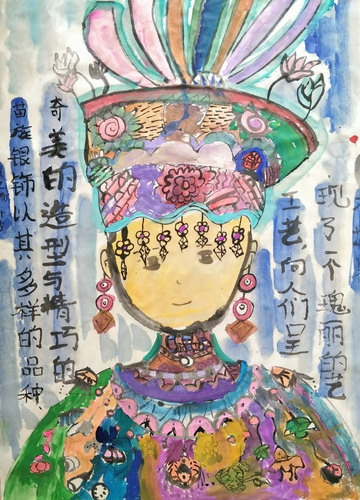 苗族银饰以其多样的品种、
奇美的造型与精巧的
工艺向人们呈
现了不瑰丽的艺